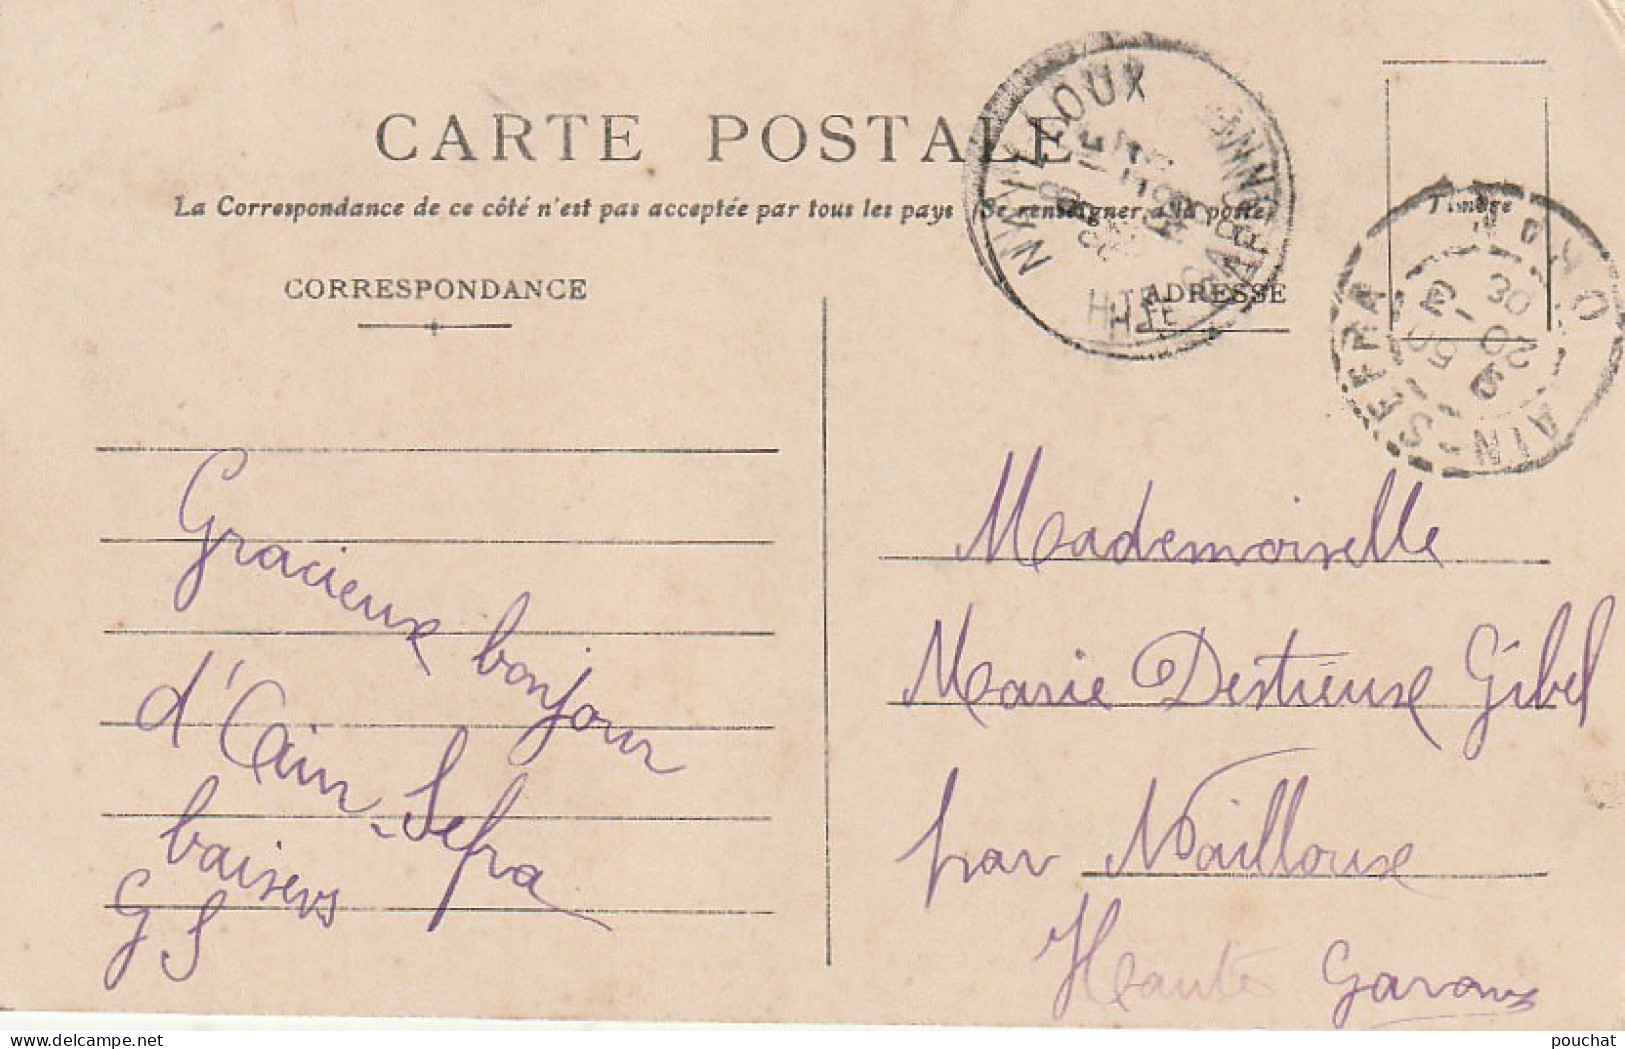 CARTE POSTALE
La Correspondance de ce côté n'est pas acceptée par tous les pays (Se renseigner à la poste)
CORRESPONDANCE
ADRESSE
Timbre
NAILLOUX
HTE GARONNE
AIN-SEFRA
ORAN
Gracieux bonjour
d'Ain-Sefra
baisers
GS
Mademoiselle
Marie Destieux Gibel
par Nailloux
Haute Garonne
pouchat